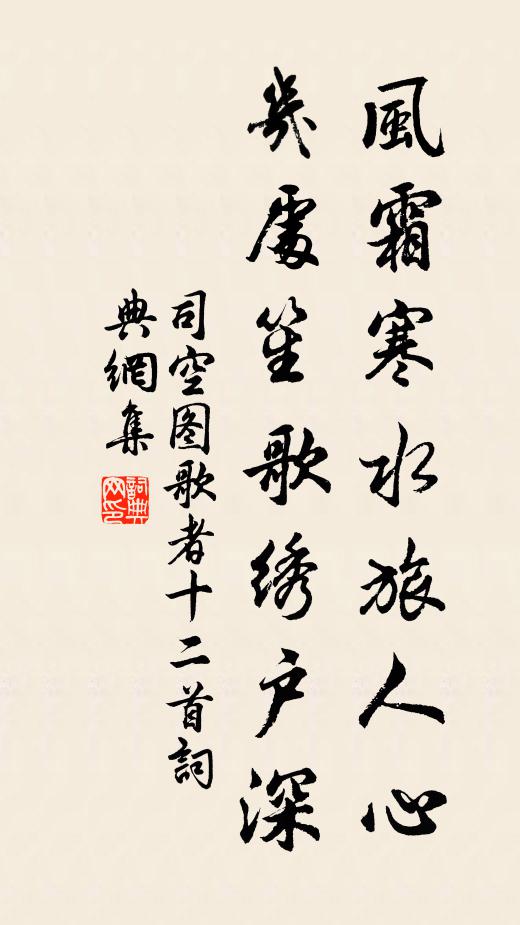 風霜寒水旅人心
幾處笙歌绣户深
司空图歌者十二首詞
典網集
詞典网印